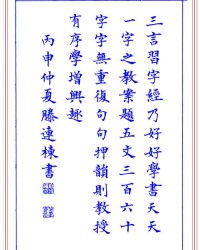 三言習字經乃好好學書天天
一字之教案題五文三百六十
字字無重復句句押韻則教授
有序學增興趣
丙申仲夏滕連棟書